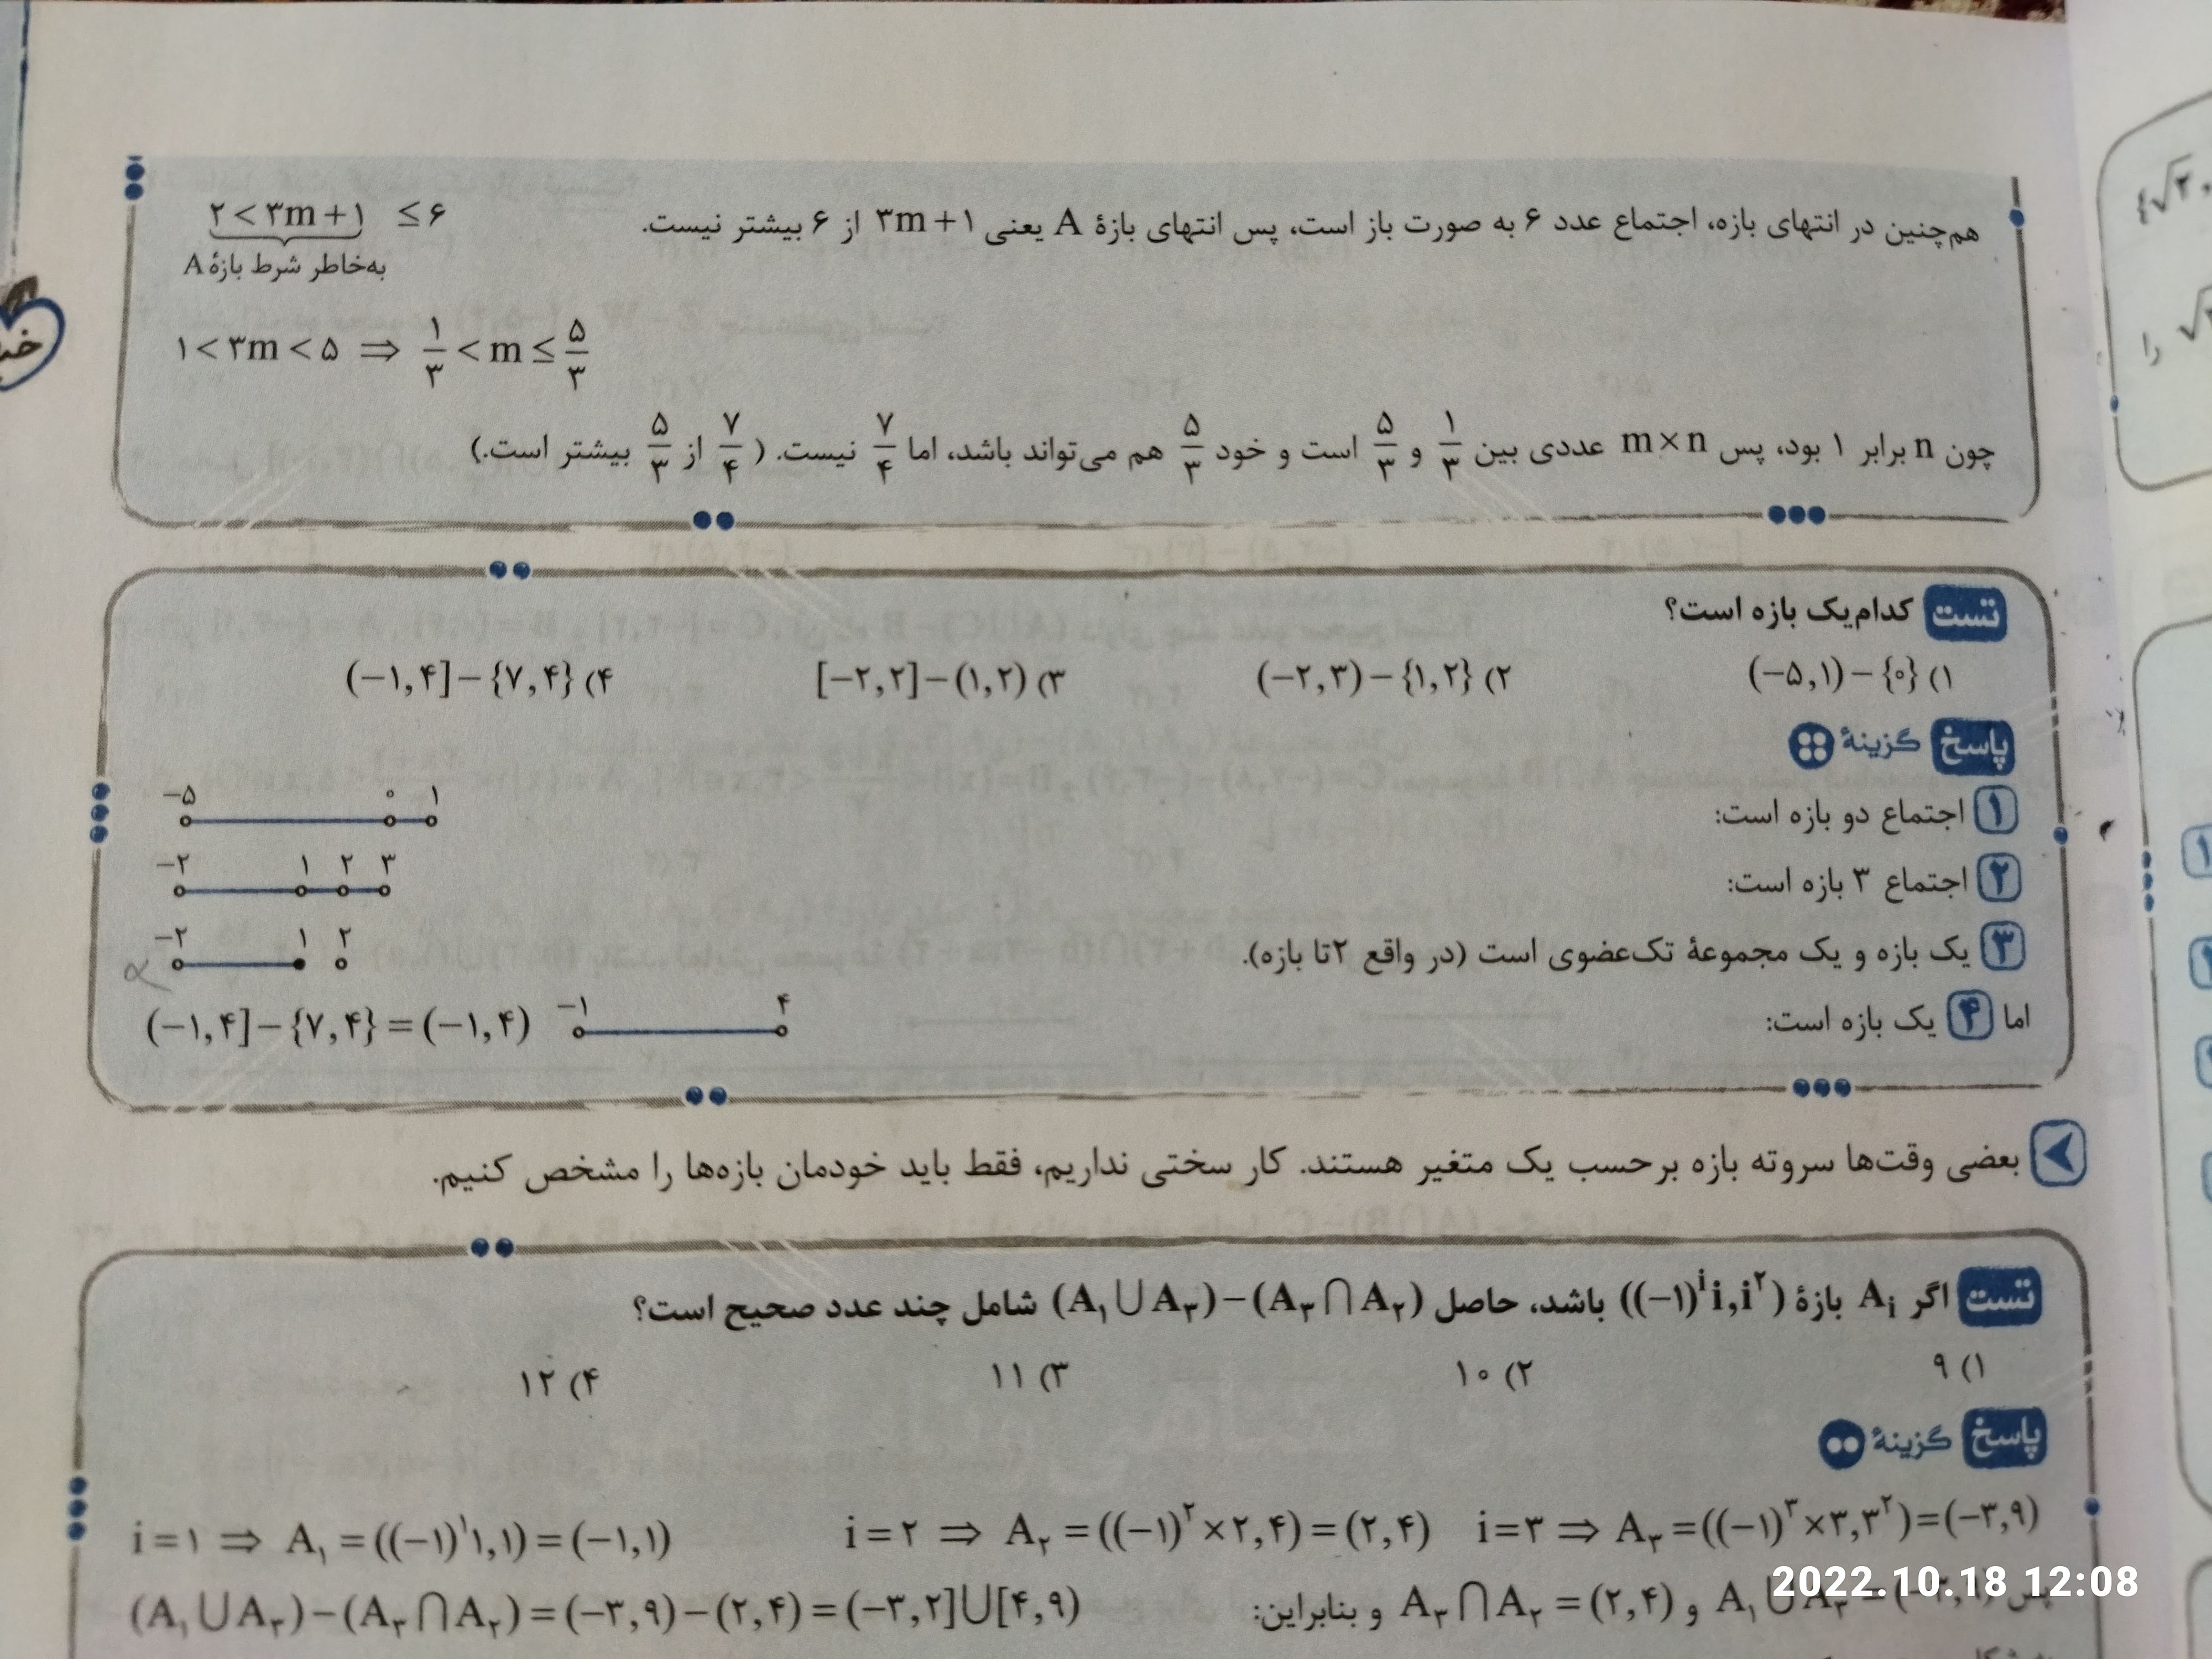 هم‌چنین در انتهای بازه، اجتماع عدد ۶ به صورت باز است، پس انتهای بازهٔ A یعنی ۳m+۱ از ۶ بیشتر نیست. ۲<۳m+۱ ≤۶
به‌خاطر شرط بازهٔ A
۱<۳m<۵ ⇒ ۱/۳ <m≤ ۵/۳
چون n برابر ۱ بود، پس m×n عددی بین ۱/۳ و ۵/۳ است و خود ۵/۳ هم می‌تواند باشد، اما ۷/۴ نیست. (۷/۴ از ۵/۳ بیشتر است.)
تست کدام‌یک بازه است؟
۱) (−۵,۱)−{۰} ۲) (−۲,۳)−{۱,۲} ۳) [−۲,۲]−(۱,۲) ۴) (−۱,۴]−{۷,۴}
پاسخ گزینهٔ
۱ اجتماع دو بازه است: −۵ ۰ ۱
۲ اجتماع ۳ بازه است: −۲ ۱ ۲ ۳
۳ یک بازه و یک مجموعهٔ تک‌عضوی است (در واقع ۲تا بازه). −۲ ۱ ۲
اما ۴ یک بازه است: (−۱,۴]−{۷,۴}=(−۱,۴) −۱ ۴
بعضی وقت‌ها سروته بازه برحسب یک متغیر هستند. کار سختی نداریم، فقط باید خودمان بازه‌ها را مشخص کنیم.
تست اگر Aᵢ بازهٔ ((−۱)ⁱi,i²) باشد، حاصل (A₁∪A₃)−(A₃∩A₂) شامل چند عدد صحیح است؟
۱) ۹ ۲) ۱۰ ۳) ۱۱ ۴) ۱۲
پاسخ گزینهٔ
i=۱ ⇒ A₁=((−۱)¹۱,۱)=(−۱,۱) i=۲ ⇒ A₂=((−۱)²×۲,۴)=(۲,۴) i=۳ ⇒ A₃=((−۱)³×۳,۳²)=(−۳,۹)
2022.10.18 12:08
پس A₁∪A₃ و A₃∩A₂=(۲,۴) و بنابراین: (A₁∪A₃)−(A₃∩A₂)=(−۳,۹)−(۲,۴)=(−۳,۲]∪[۴,۹)